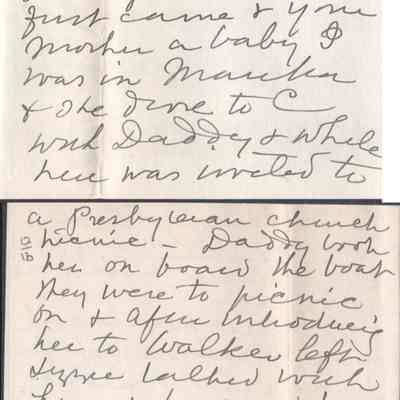 just came & your
mother a baby I
was in Manka
& she drove to C
with Daddy & while
here was invited to
a Presbyterian church
picnic - Daddy took
her on board the boat
they were to picnic
on & after introducing
her to Walker left
Lizzie talked with